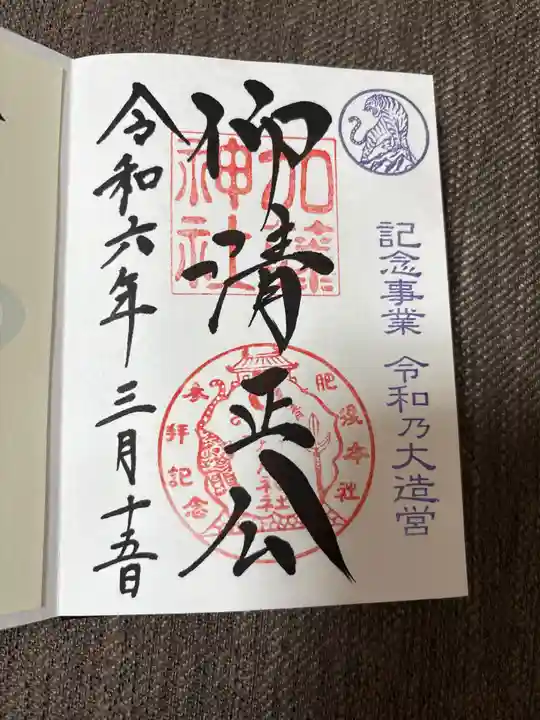 記念事業 令和乃大造営
仰清正公
加藤
神社
肥後本社
参拝記念
令和六年 三月十五日